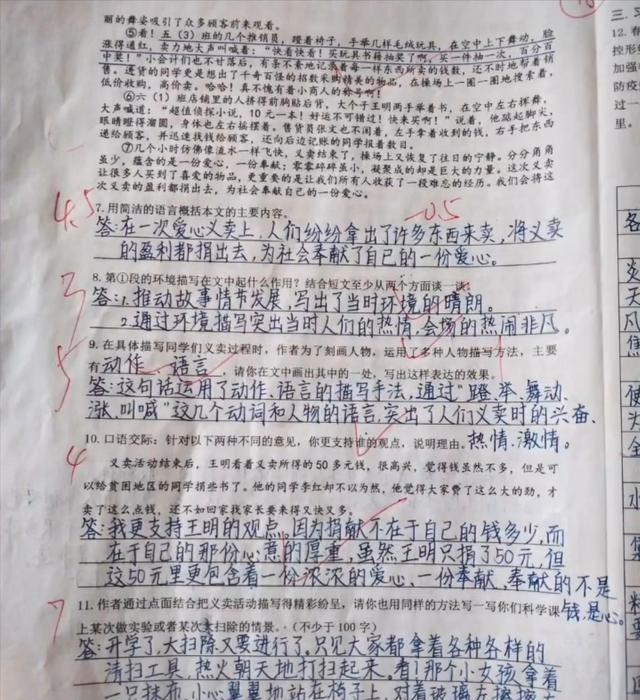 丽的舞姿吸引了众多顾客前来观看。
⑤看！五（3）班的几个推销员，蹬着椅子，手举几样毛绒玩具，在空中上下舞动，脸
涨得通红，卖力地大声叫喊着：“快看快看！买玩具书籍抽奖了啊，买一件抽一次，百分百
中奖！”小会计们也不甘落后，有条不紊地记录着每一样东西所卖的钱数，还不时地帮着销
售。逛货的同学更是想出了千奇百怪的招数来购精美的物品，在操场上一圈一圈地搜索着，
低价收购，高价卖。哈哈！真不愧有着小商人的称号啊！
⑥六（1）班店铺里的人挤得前胸贴后背，大个子王明两手举着书，在空中左右挥舞，
大声喊道：“超值侦探小说，10元一本！好运不可错过！快来买啊！”说着，他踮起脚尖，
眼睛瞪得溜圆，身体也左右摇摆着。售货员张文也不闲着，左手拿着收到的钱，右手把东西
递给顾客，并迅速找钱给顾客，还向后边记账的同学报着数目。
⑦几个小时仿佛像流水一样飞快，义卖结束了，操场上又恢复了往日的宁静。分分角角
虽少，蕴含的是一份爱心，一份奉献；零零碎碎虽小，凝聚成的却是巨大的力量。这次义卖
让很多人买到了喜爱的物品，更重要的是让我们所有人收获了一段难忘的经历。我们会将这
次义卖的盈利都捐出去，为社会奉献自己的一份爱心。
4.5
-0.5
7. 用简洁的语言概括本文的主要内容。
答：在一次爱心义卖上，人们纷纷拿出了许多东西来卖，将义卖
的盈利都捐出去，为社会奉献了自己的一份爱心。
8. 第①段的环境描写在文中起什么作用？结合短文至少从两个方面谈一谈。
3
答：1.推动故事情节发展，写出了当时环境的晴朗。
2.通过环境描写突出当时人们的热情，会场的热闹非凡。
9. 在具体描写同学们义卖过程时，作者为了刻画人物，运用了多种人物描写方法，主要
5
有动作、语言，请你在文中画出其中的一处，写出这样表达的效果。
答：这句话运用了动作、语言的描写手法，通过“蹬、举、舞动、
涨、叫喊”这几个动词和人物的语言，突出了人们义卖时的兴奋、
热情、激情。
10. 口语交际：针对以下两种不同的意见，你更支持谁的观点，说明理由。
4
义卖活动结束后，王明看着义卖所得的50多元钱，很高兴，觉得钱虽然不多，但是可
以给贫困地区的同学捐些书了。他的同学李红却不以为然，他觉得大家费了这么大的劲，才
卖了这么点钱，还不如回家找家长要来得又快又多。
答：我更支持王明的观点。因为捐献不在于自己的钱多少，而
在于自己的那份心意的厚重，虽然王明只捐了50元，但
这50元里更包含着一份浓浓的爱心，一份奉献，奉献的不是
钱，是心。
7
11. 作者通过点面结合把义卖活动描写得精彩纷呈，请你也用同样的方法写一写你们科学课
上某次做实验或者某次大扫除的情景。（不少于100字）
答：开学了，大扫除又要进行了。只见大家都拿着各种各样的
清扫工具，热火朝天地打扫起来。看！那个小女孩拿着
一只抹布，小心翼翼地站在椅子上，对着玻璃